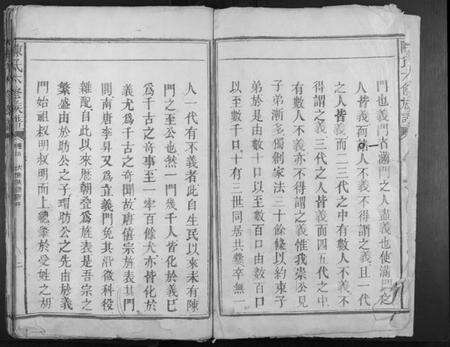 門也義門古滿門之人盡義也使滿門之
人皆義而一人不義不得謂之義且一代
之人皆義而二三代之中有數人不義不
得謂之義三代之人皆義而四五代之中
有數人不義亦不得謂之義惟我崇公見
子弟漸多獨創家法三十餘條以約束子
弟於是由數十口以至數百口由數百口
以至數千口十有三世同居共爨卒無一
人一代有不義者此自生民以來未有陳
門之至公也然一門幾千人皆化於義已
為千古之奇事至一牢百餘犬亦皆化於
義尤為千古之奇聞故唐僖宗旌表其門
開南唐李昇又為立義門免其徭徵科役
雜配自此以來歷朝登為旌表是吾宗之
繁盛由於助公之子環助公之先由於義
門始祖叔明叔明而上肇於受姓之胡